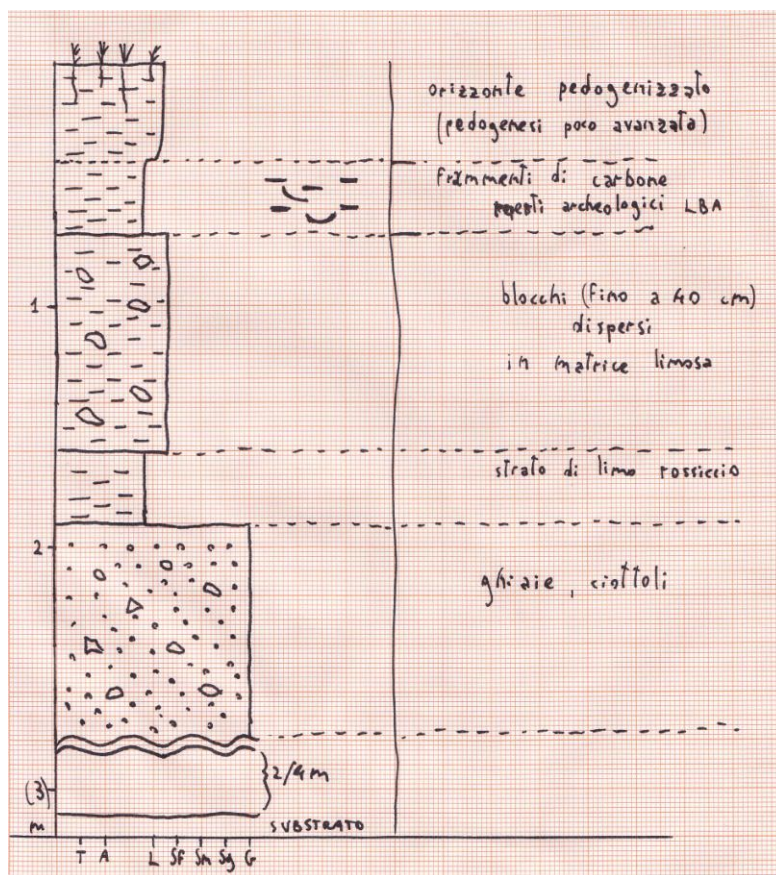 orizzonte pedogenizzato
(pedogenesi poco avanzata)
frammenti di carbone
reperti archeologici LBA
1
blocchi (fino a 40 cm)
dispersi
in matrice limosa
strato di limo rossiccio
2
ghiaie, ciottoli
2/4 m
(3)
m
SUBSTRATO
T A L Sf Sm Sg G